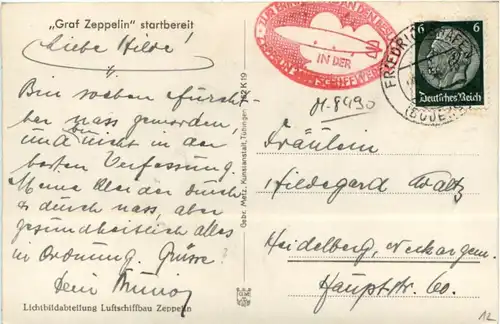 „Graf Zeppelin” startbereit
Liebe Hilde!
Bin soeben furcht-
bar nass geworden,
und bin nicht in der
besten Verfassung.
Meine Kleider durch
u durch nass, aber
gesundheitlich alles
in Ordnung. Grüsse
Dein
Lichtbildabteilung Luftschiffbau Zeppelin
Gebr. Metz, Kunstanstalt, Tübingen
K 19
IN DER
FRIEDRICHSHAFEN
(BODENSEE)
6
Deutsches Reich
M-8490
Fräulein
Hildegard Waltz
Heidelberg, Neckargem.
Hauptstr. 60.
12